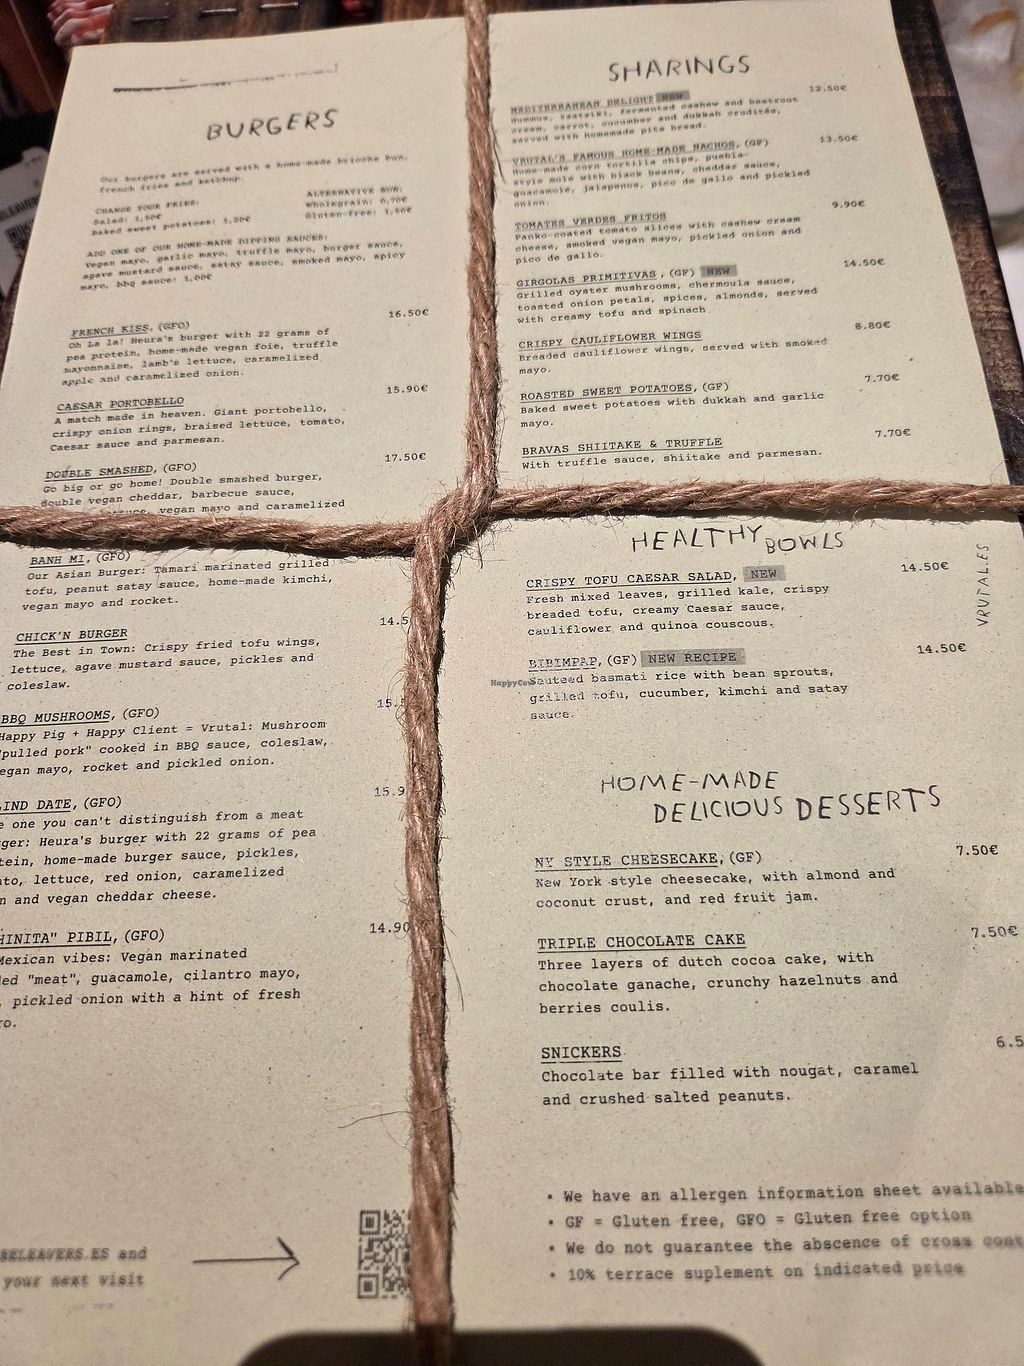 BURGERS
Our burgers are served with a home-made brioche bun,
french fries and ketchup.
CHANGE YOUR FRIES:
Salad: 2,50€
Baked sweet potatoes: 3,00€
ALTERNATIVE BUN:
Wholegrain: 0,70€
Gluten-free: 1,50€
ADD ONE OF OUR HOME-MADE DIPPING SAUCES:
vegan mayo, garlic mayo, truffle mayo, burger sauce,
agave mustard sauce, satay sauce, smoked mayo, spicy
mayo, bbq sauce: 1,00€
16.50€
FRENCH KISS, (GFO)
Oh La la! Heura's burger with 22 grams of
pea protein, home-made vegan foie, truffle
mayonnaise, lamb's lettuce, caramelized
apple and caramelized onion.
15.90€
CAESAR PORTOBELLO
A match made in heaven. Giant portobello,
crispy onion rings, braised lettuce, tomato,
Caesar sauce and parmesan.
17.50€
DOUBLE SMASHED, (GFO)
Go big or go home! Double smashed burger,
double vegan cheddar, barbecue sauce,
vegan mayo and caramelized
BANH MI, (GFO)
Our Asian Burger: Tamari marinated grilled
tofu, peanut satay sauce, home-made kimchi,
vegan mayo and rocket.
14.5
CHICK'N BURGER
The Best in Town: Crispy fried tofu wings,
lettuce, agave mustard sauce, pickles and
coleslaw.
15.
BBQ MUSHROOMS, (GFO)
Happy Pig + Happy Client = Vrutal: Mushroom
"pulled pork" cooked in BBQ sauce, coleslaw,
egan mayo, rocket and pickled onion.
15.9
LIND DATE, (GFO)
e one you can't distinguish from a meat
rger: Heura's burger with 22 grams of pea
tein, home-made burger sauce, pickles,
ato, lettuce, red onion, caramelized
n and vegan cheddar cheese.
14.90
HINITA" PIBIL, (GFO)
Mexican vibes: Vegan marinated
led "meat", guacamole, cilantro mayo,
, pickled onion with a hint of fresh
ro.
BELEAVERS.ES and
your next visit
SHARINGS
12.50€
MEDITERRANEAN DELIGHT NEW
Hummus, tzatziki, fermented cashew and beetroot
cream, carrot, cucumber and dukkah crudités,
served with homemade pita bread.
13.50€
VRUTAL'S FAMOUS HOME-MADE NACHOS, (GF)
Home-made corn tortilla chips, puebla-
style mole with black beans, cheddar sauce,
guacamole, jalapenos, pico de gallo and pickled
onion.
9.90€
TOMATES VERDES FRITOS
Panko-coated tomato slices with cashew cream
cheese, smoked vegan mayo, pickled onion and
pico de gallo.
14.50€
GIRGOLAS PRIMITIVAS, (GF) NEW
Grilled oyster mushrooms, chermoula sauce,
toasted onion petals, spices, almonds, served
with creamy tofu and spinach
8.80€
CRISPY CAULIFLOWER WINGS
Breaded cauliflower wings, served with smoked
mayo.
7.70€
ROASTED SWEET POTATOES, (GF)
Baked sweet potatoes with dukkah and garlic
mayo.
7.70€
BRAVAS SHIITAKE & TRUFFLE
With truffle sauce, shiitake and parmesan.
HEALTHY BOWLS
VRUTAL.ES
14.50€
CRISPY TOFU CAESAR SALAD, NEW
Fresh mixed leaves, grilled kale, crispy
breaded tofu, creamy Caesar sauce,
cauliflower and quinoa couscous.
14.50€
BIBIMPAP, (GF) NEW RECIPE
Sauteed basmati rice with bean sprouts,
grilled tofu, cucumber, kimchi and satay
sauce.
HappyCow
HOME-MADE
DELICIOUS DESSERTS
7.50€
NY STYLE CHEESECAKE, (GF)
New York style cheesecake, with almond and
coconut crust, and red fruit jam.
7.50€
TRIPLE CHOCOLATE CAKE
Three layers of dutch cocoa cake, with
chocolate ganache, crunchy hazelnuts and
berries coulis.
6.5
SNICKERS
Chocolate bar filled with nougat, caramel
and crushed salted peanuts.
• We have an allergen information sheet available
• GF = Gluten free, GFO = Gluten free option
• We do not guarantee the abscence of cross cont
• 10% terrace suplement on indicated price